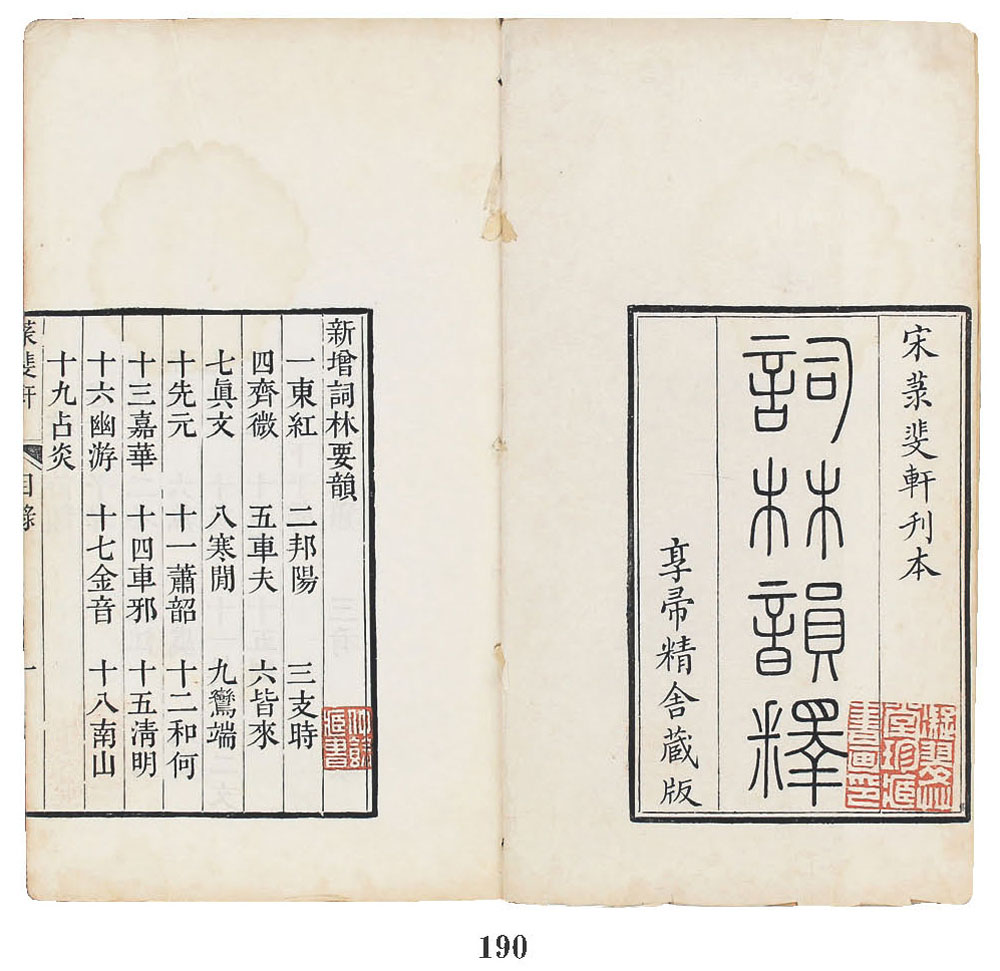 宋菉斐軒刊本
詞林韻釋
享帚精舍藏版
新增詞林要韻
一東紅 二邦陽 三支時
四齊微 五車夫 六皆來
七眞文 八寒閒 九鸞端
十先元 十一蕭韶 十二和何
十三嘉華 十四車邪 十五清明
十六幽游 十七金音 十八南山
十九占炎
菉斐軒 目錄 一
190